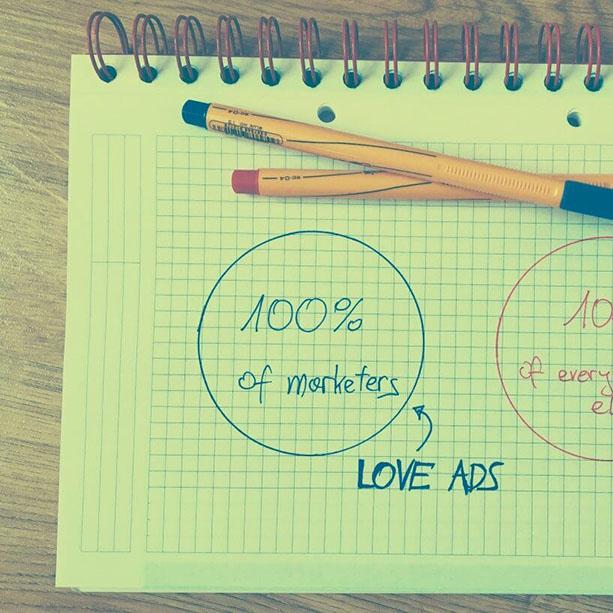 100%
of marketers
LOVE ADS
10
of every
el